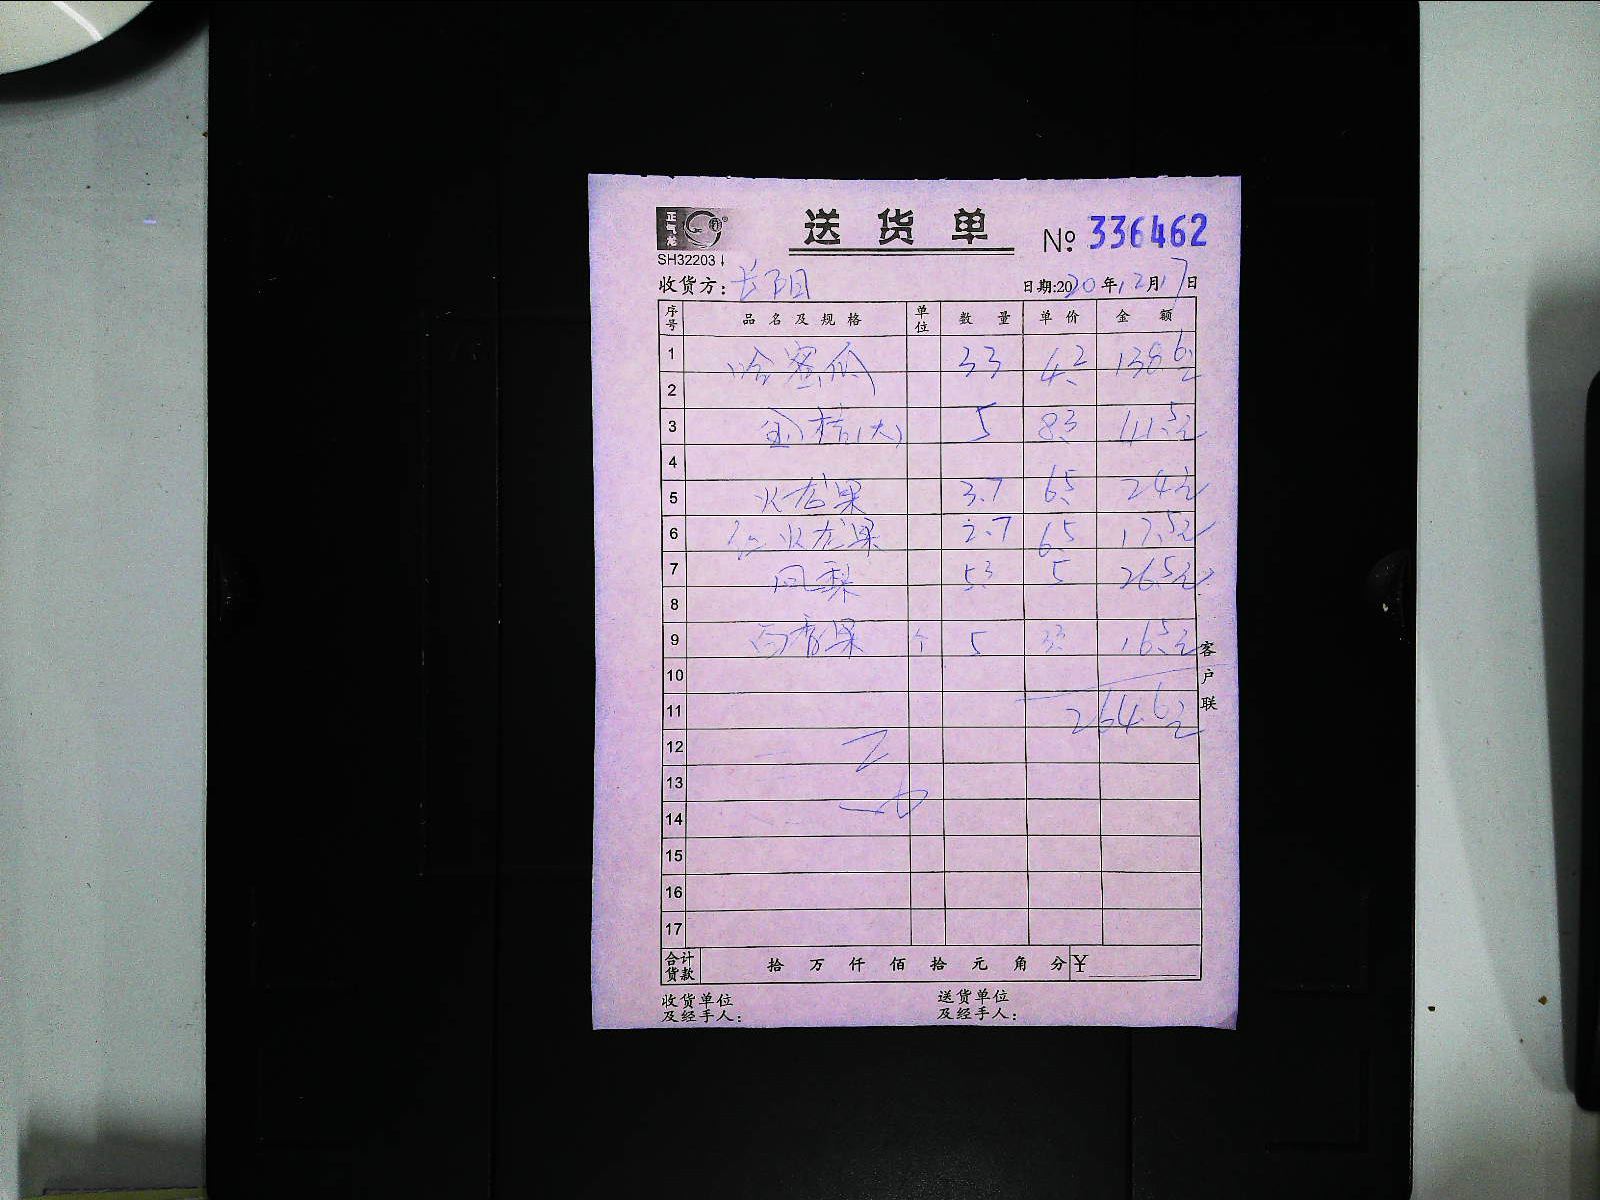 正气龙
送货单 № 336462
SH32203
收货方: 长阳 日期:2020年12月17日
序号 品名及规格 单位 数量 单价 金额
1 哈密瓜 33 4.2 138.6元
2
3 金桔(大) 5 8.3 41.5元
4
5 火龙果 3.7 6.5 24元
6 红火龙果 2.7 6.5 17.5元
7 凤梨 5.3 5 26.5元
8
9 百香果 个 5 3.3 16.5元
10
11 264.6元
12
13
14
15
16
17
客户联
合计货款 拾万仟佰拾元角分 ¥
收货单位及经手人: 送货单位及经手人: